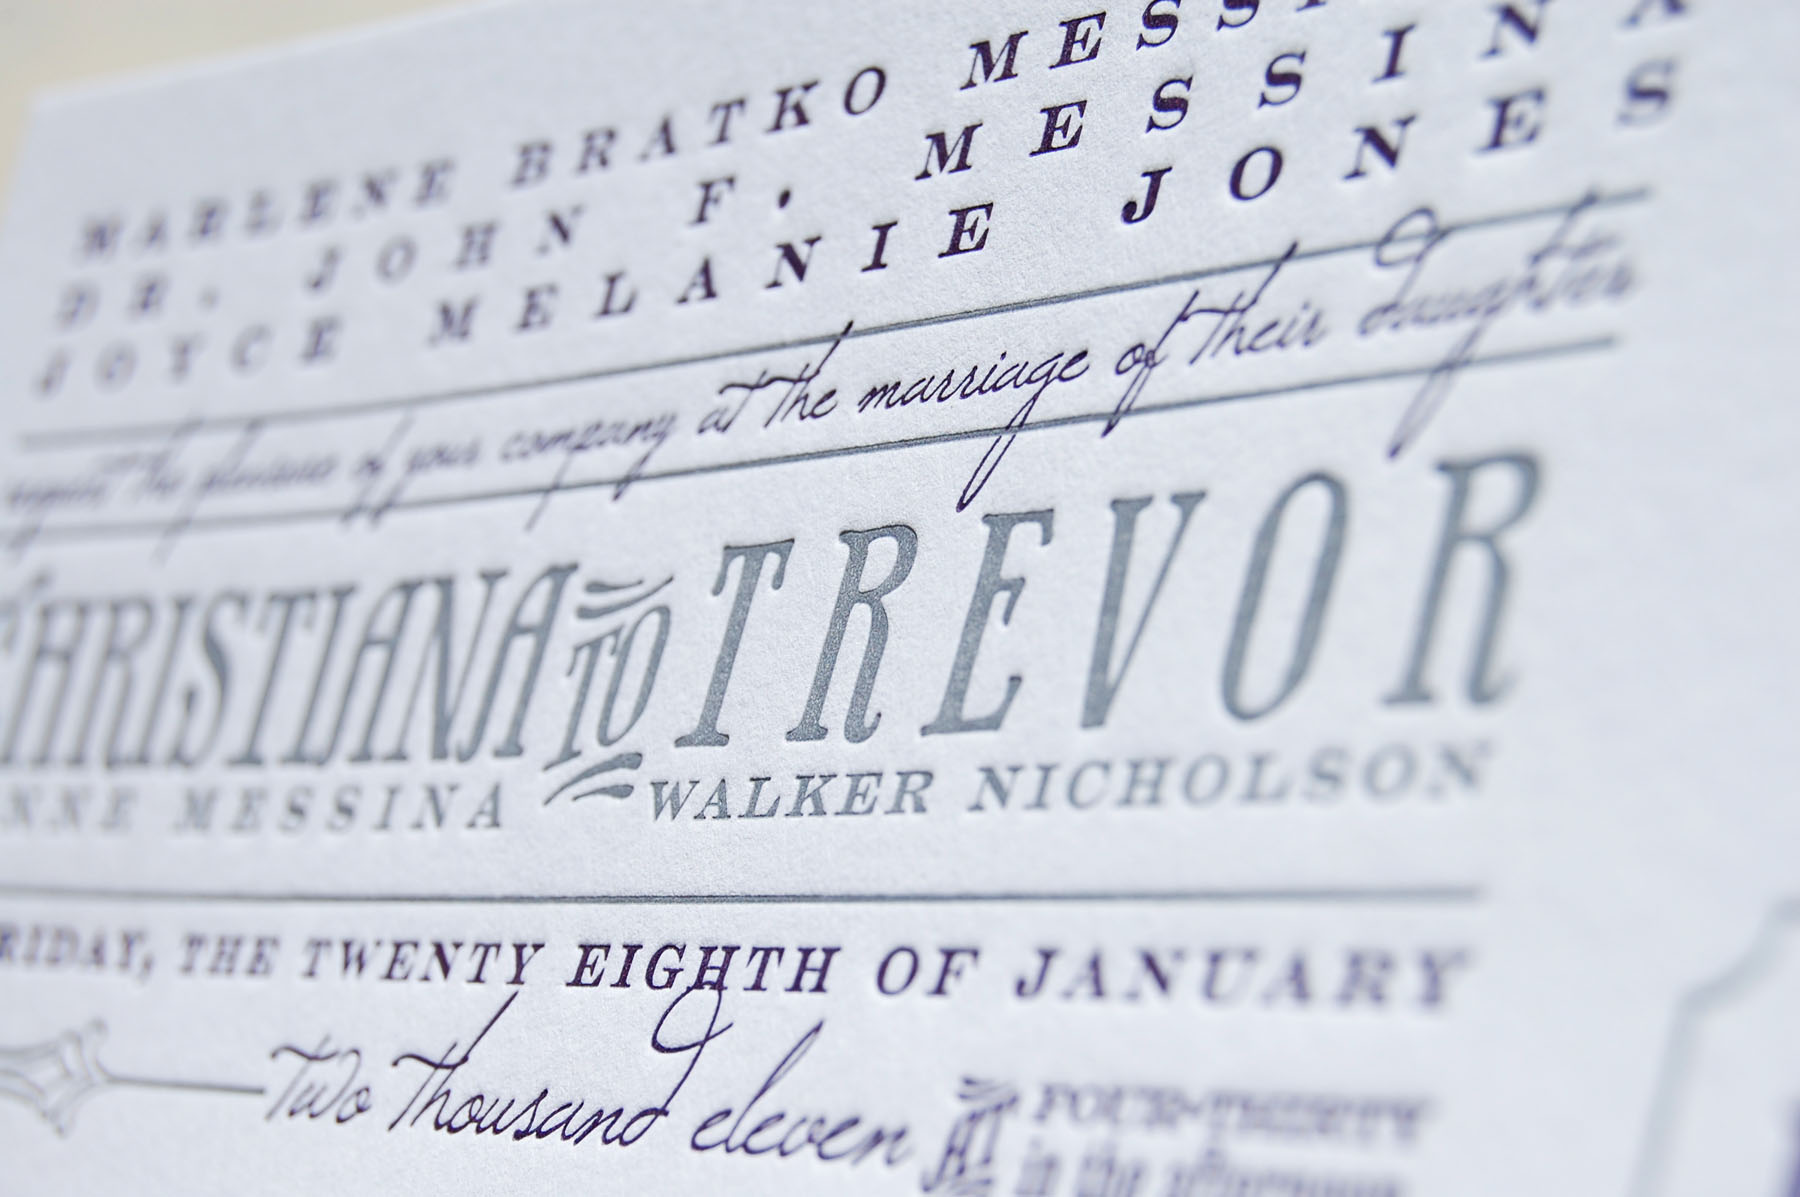 MARLENE BRATKO MESSI
DR. JOHN F. MESSINA
JOYCE MELANIE JONES
request the pleasure of your company at the marriage of their daughter
CHRISTIANA TO TREVOR
NNE MESSINA WALKER NICHOLSON
RIDAY, THE TWENTY EIGHTH OF JANUARY
Two Thousand eleven AT FOUR-THIRTY
in the afternoon